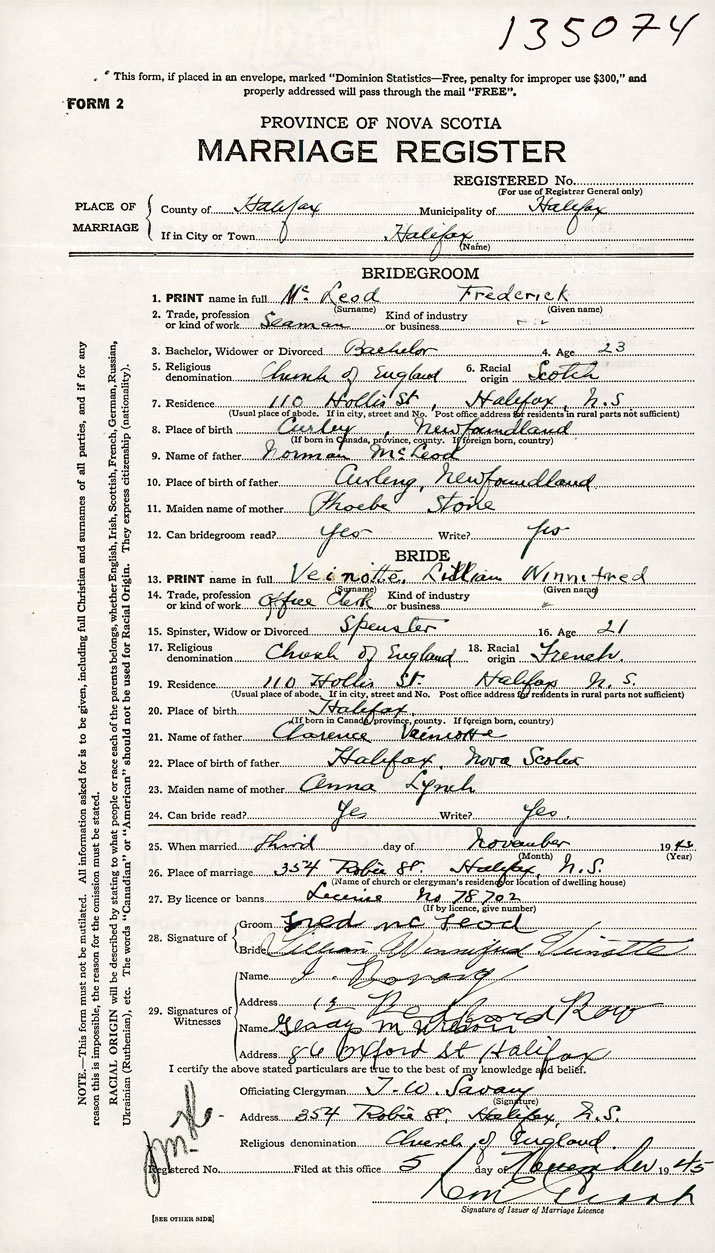 135074
" This form, if placed in an envelope, marked "Dominion Statistics—Free, penalty for improper use $300," and
properly addressed will pass through the mail "FREE".
FORM 2
PROVINCE OF NOVA SCOTIA
MARRIAGE REGISTER
REGISTERED No.
(For use of Registrar General only)
PLACE OF MARRIAGE
County of Halifax Municipality of Halifax
If in City or Town Halifax
(Name)
BRIDEGROOM
1. PRINT name in full Mc Leod Frederick
(Surname) (Given name)
2. Trade, profession or kind of work Seaman Kind of industry or business
3. Bachelor, Widower or Divorced Bachelor 4. Age 23
5. Religious denomination Church of England 6. Racial origin Scotch
7. Residence 110 Hollis St, Halifax, N.S.
(Usual place of abode. If in city, street and No. Post office address for residents in rural parts not sufficient)
8. Place of birth Curley, Newfoundland
(If born in Canada, province, county. If foreign born, country)
9. Name of father Norman McLeod
10. Place of birth of father Curling, Newfoundland
11. Maiden name of mother Phoebe Stone
12. Can bridegroom read? Yes Write? Yes
BRIDE
13. PRINT name in full Veinotte, Lillian Winnifred
(Surname) (Given name)
14. Trade, profession or kind of work Office Clerk Kind of industry or business "
15. Spinster, Widow or Divorced Spenster 16. Age 21
17. Religious denomination Church of England 18. Racial origin French.
19. Residence 110 Hollis St. Halifax N.S.
(Usual place of abode. If in city, street and No. Post office address for residents in rural parts not sufficient)
20. Place of birth Halifax
(If born in Canada, province, county. If foreign born, country)
21. Name of father Clarence Veinotte
22. Place of birth of father Halifax, Nova Scotia
23. Maiden name of mother Anna Lynch
24. Can bride read? Yes Write? Yes.
25. When married third day of November 1945
(Month) (Year)
26. Place of marriage 354 Robie St. Halifax, N.S.
(Name of church or clergyman's residence or location of dwelling house)
27. By licence or banns License No 78702
(If by licence, give number)
28. Signature of
Groom Fred Mc Leod
Bride Lillian Winnifred Veinotte
29. Signatures of Witnesses
Name J.
Address 12 Bedford Row
Name M Wilson
Address 86 Oxford St Halifax
I certify the above stated particulars are true to the best of my knowledge and belief.
Officiating Clergyman T. W. Savary
(Signature)
Address 354 Robie St, Halifax, N.S.
Religious denomination Church of England
Registered No. Filed at this office 5 day of November 1945
Signature of Issuer of Marriage Licence
[SEE OTHER SIDE]
NOTE.—This form must not be mutilated. All information asked for is to be given, including full Christian and surnames of all parties, and if for any
reason this is impossible, the reason for the omission must be stated.
RACIAL ORIGIN will be described by stating to what people or race each of the parents belongs, whether English, Irish, Scottish, French, German, Russian,
Ukrainian (Ruthenian), etc. The words "Canadian" or "American" should not be used for Racial Origin. They express citizenship (nationality).